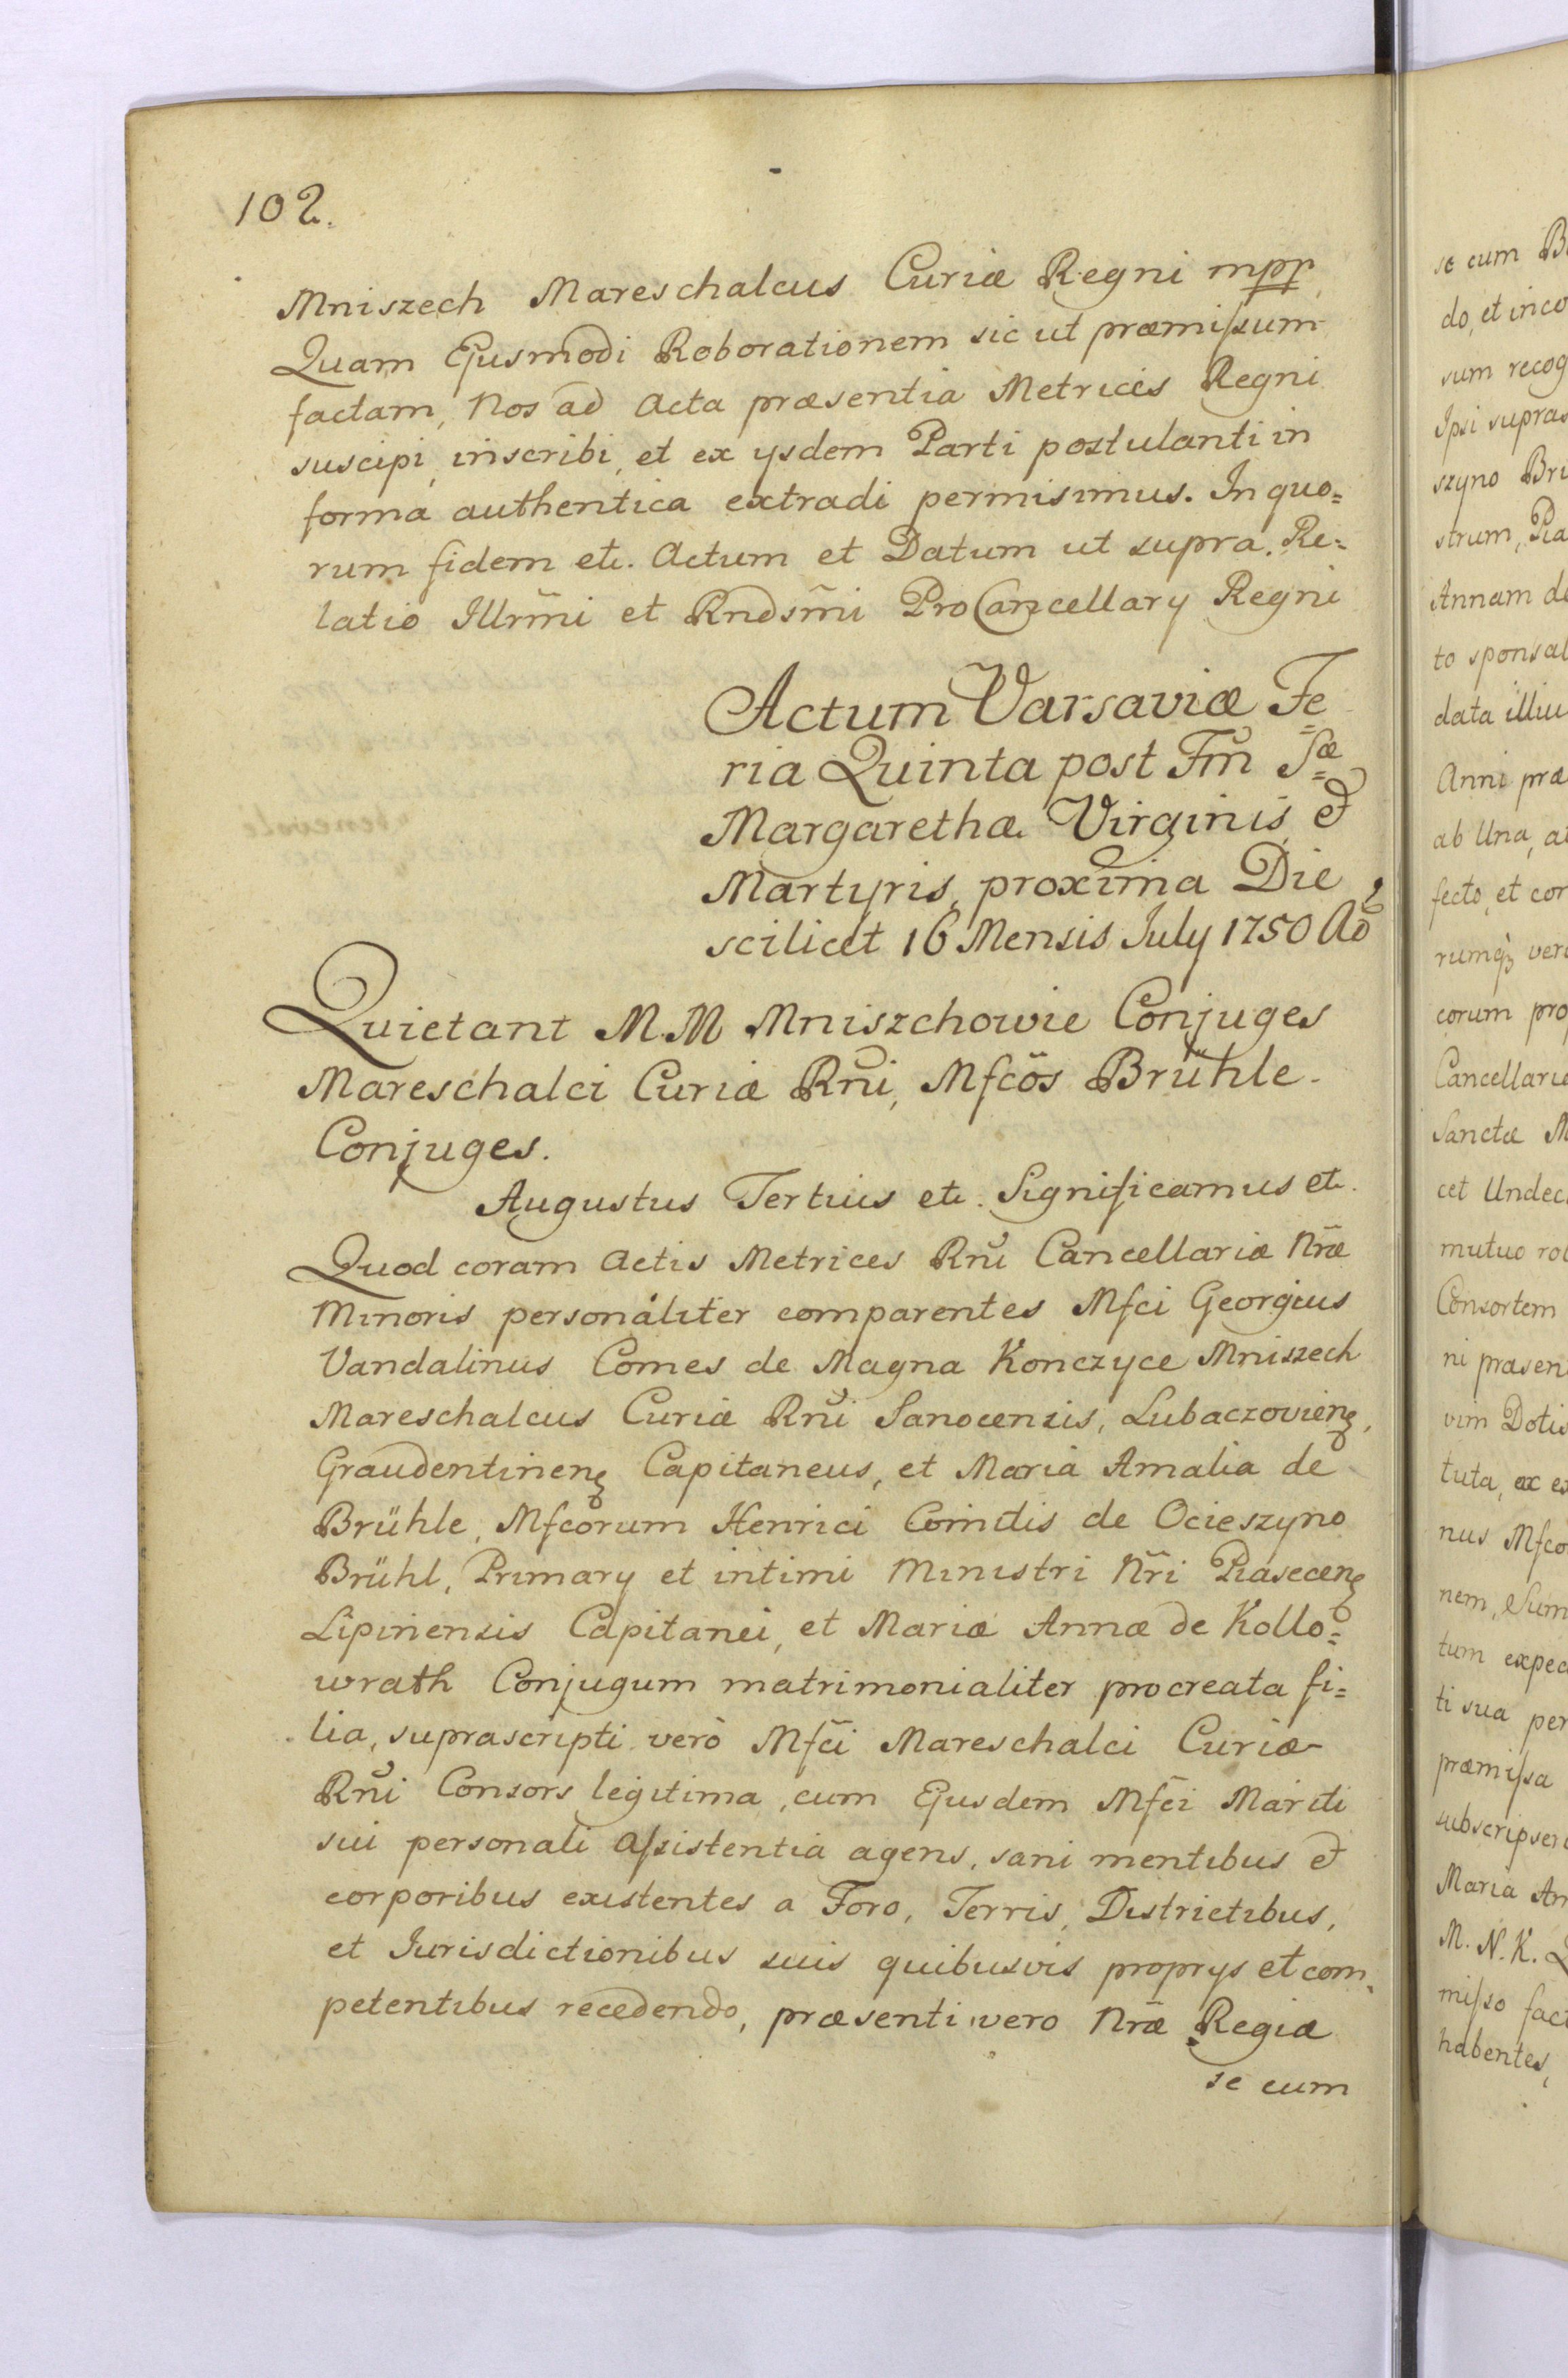 102.
Mniszech Mareschalcus Curiæ Regni mpp
Quam Ejusmodi Roborationem sic ut præmissum
factam, Nos ad Acta præsentia Metrices Regni
suscipi, inscribi, et ex ysdem Parti postulanti in
forma authentica extradi permisimus. In quo=
rum fidem etc. Actum et Datum ut supra. Re=
latio Illr̃mi et Rndsm̃i ProCancellary Regni
Actum Varsaviæ Fe=
ria Quinta post Fm̃ Sæ=
Margarethæ Virginis et
Martyris, proxima Die
scilicet 16 Mensis July 1750 Ao
Quietant M.M Mniszchowie Conjuges
Mareschalci Curiæ Rñi, Mfcõs Brühle
Conjuges.
Augustus Tertius etc. Significamus etc.
Quod coram Actis Metrices Rñi Cancellariæ Nr̃æ
Minoris personaliter comparentes Mfci Georgius
Vandalinus Comes de Magna Konczyce Mniszech
Mareschalcus Curiæ Rñi Sanocensis, Lubaczoviens,
Graudentinens Capitaneus, et Maria Amalia de
Brühle, Mfcorum Henrici Comitis de Ocieszyno
Brühl, Primary et intimi Ministri Nr̃i Piasecens
Lipinensis Capitanei, et Mariæ Annæ de Kollo=
wrath Conjugum matrimonialiter procreata fi=
lia, suprascripti verò Mfc̃i Mareschalci Curiæ
Rñi Consors legitima, cum Ejusdem Mfc̃i Mariti
sui personali Assistentia agens, sani mentibus et
corporibus existentes a Foro, Terris, Districtibus,
et Jurisdictionibus suis quibusvis proprys et com=
petentibus recedendo, præsenti vero Nr̃æ Regiæ
se cum
se cum
do, et inco
sum recog
Ipsi supras
szyno Brü
strum, Pia
Annam de
to sponsal
data illiu
Anni præ
ab Una, a
fecto, et cor
rumq3 ver
corum pro
Cancellariæ
Sanctæ M
cet Undec
mutuo rob
Consortem
ni præsen
vim Dotis
tuta, ex e
nus Mfco
nem, Sum
tum exped
ti sua per
præmissa
subscripser
Maria Am
M. N. K.
misso fact
habentes,